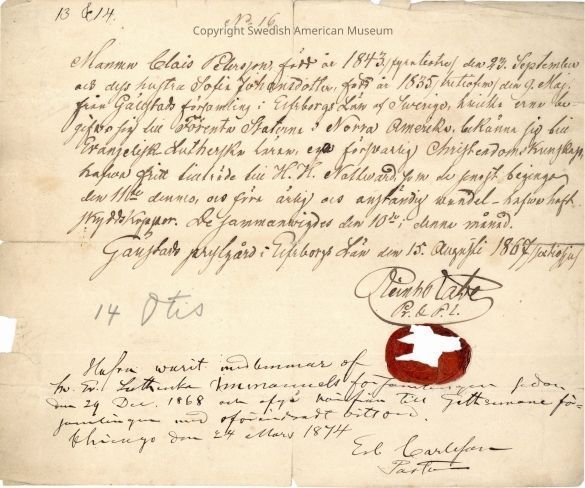 13 & 14.
Copyright Swedish American Museum
No 16.
Mannen Clais Petersson, född år 1843 /fyratretre/ den 23 September
och dess hustru Sofia Johansdotter, född år 1835, /trettiofem/ den 9 Maj,
från Gåistads församling i Elfsborgs Län af Sverige, hvilka ärna be-
gifva sig till Förenta Staterna i Norra Amerika, bekänna sig till
Evangelisk Lutherska läran, ega försvarlig Christendoms Kunskap,
hafva fritt tillträde till H. H. Nattvard, som de senast begingo
den 11te dennes, och föra ärlig och anständig vandel - hafva haft
skyddskoppor. De sammanvigdes den 10de i denne månad.
prestgård i Elfsborgs Län den 15 Augusti 1867
14 Otis
Hafva warit medlemmar af
Sv. Ev. Lutherska Immanuels församlingen sedan
den 29 Dec. 1868 och afgå härifrån till Gethsemane för-
samlingen med oförändradt bittyg.
Chicago den 24 Mars 1874
Erl. Carlsson
Pastor